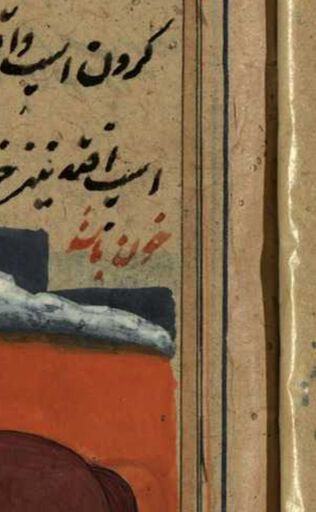 کردن اسپ وا
اسپ افتد نیز
خون باشد